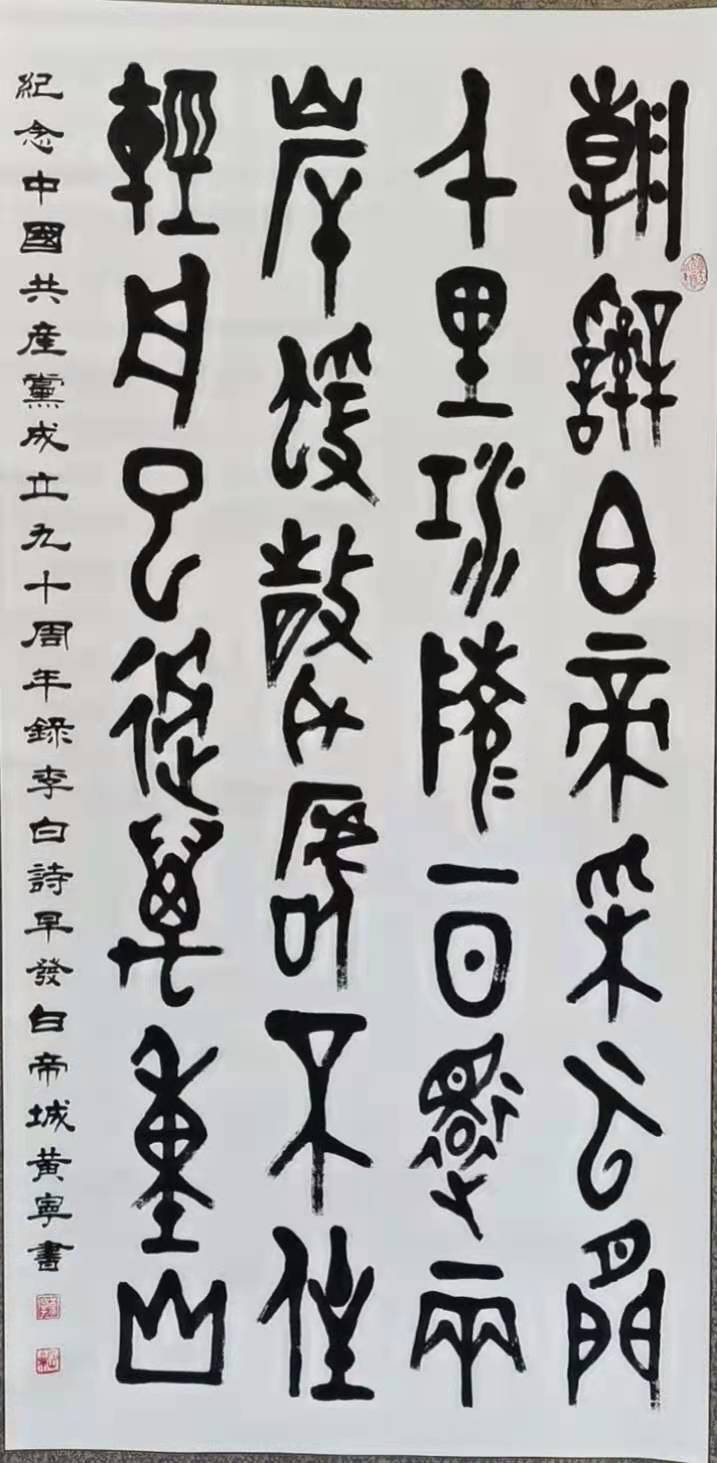 朝辭白帝采云間
千里江陵一日還兩
岸猨聲嗁不住
輕舟已過萬重山
紀念中國共産黨成立九十周年錄李白詩早發白帝城黃寧書